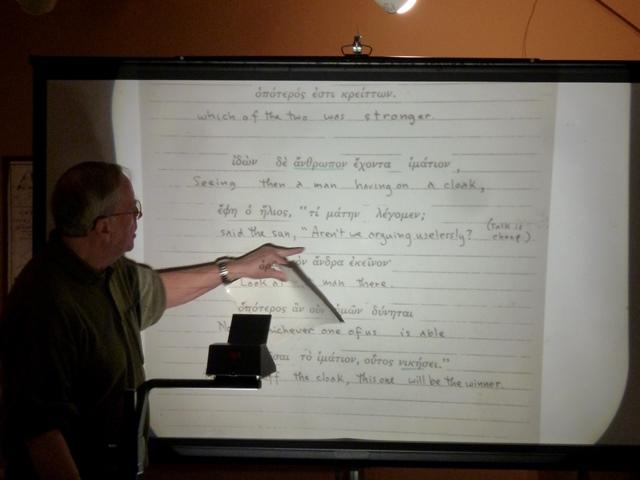 ὁπότερός ἐστι κρείττων.
which of the two was stronger.
ἰδὼν δὲ ἄνθρωπον ἔχοντα ἱμάτιον,
Seeing then a man having on a cloak,
ἔφη ὁ ἥλιος, "τί μάτην λέγομεν;
said the sun, "Aren't we arguing uselessly? (Talk is cheap.)
ἄνδρα ἐκεῖνον·
Look man there.
ὁπότερος ἂν οὖν ἡμῶν δύνηται
one of us is able
τὸ ἱμάτιον, οὗτος νικήσει."
the cloak, this one will be the winner.